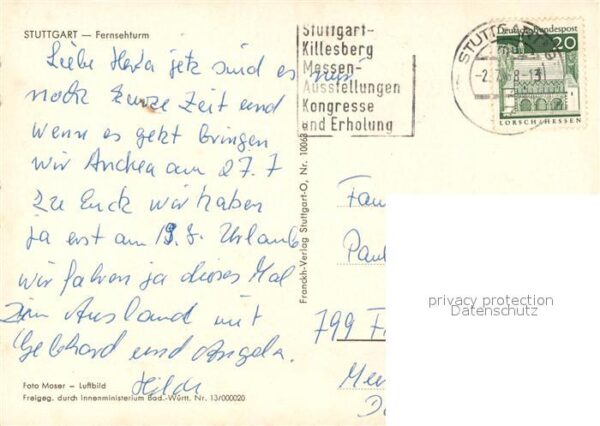 STUTTGART — Fernsehturm
Liebe Herta jetz sind es nur
noch kurze Zeit und
wenn es geht bringen
wir Andrea am 27. 7
zu Euch wir haben
ja erst am 19. 8. Urlaub
wir fahren ja dieses Mal
zum Ausland mit
Gebhard und Angela.
Hilde
Foto Moser — Luftbild
Freigeg. durch Innenministerium Bad.-Württ. Nr. 13/000020
Franckh-Verlag Stuttgart-O, Nr. 10063
Stuttgart-
Killesberg
Messen-
Ausstellungen
Kongresse
und Erholung
STUTTGART
Deutsche Bundespost
20
LORSCH/HESSEN
Fam
Paul
799 F
privacy protection
Datenschutz